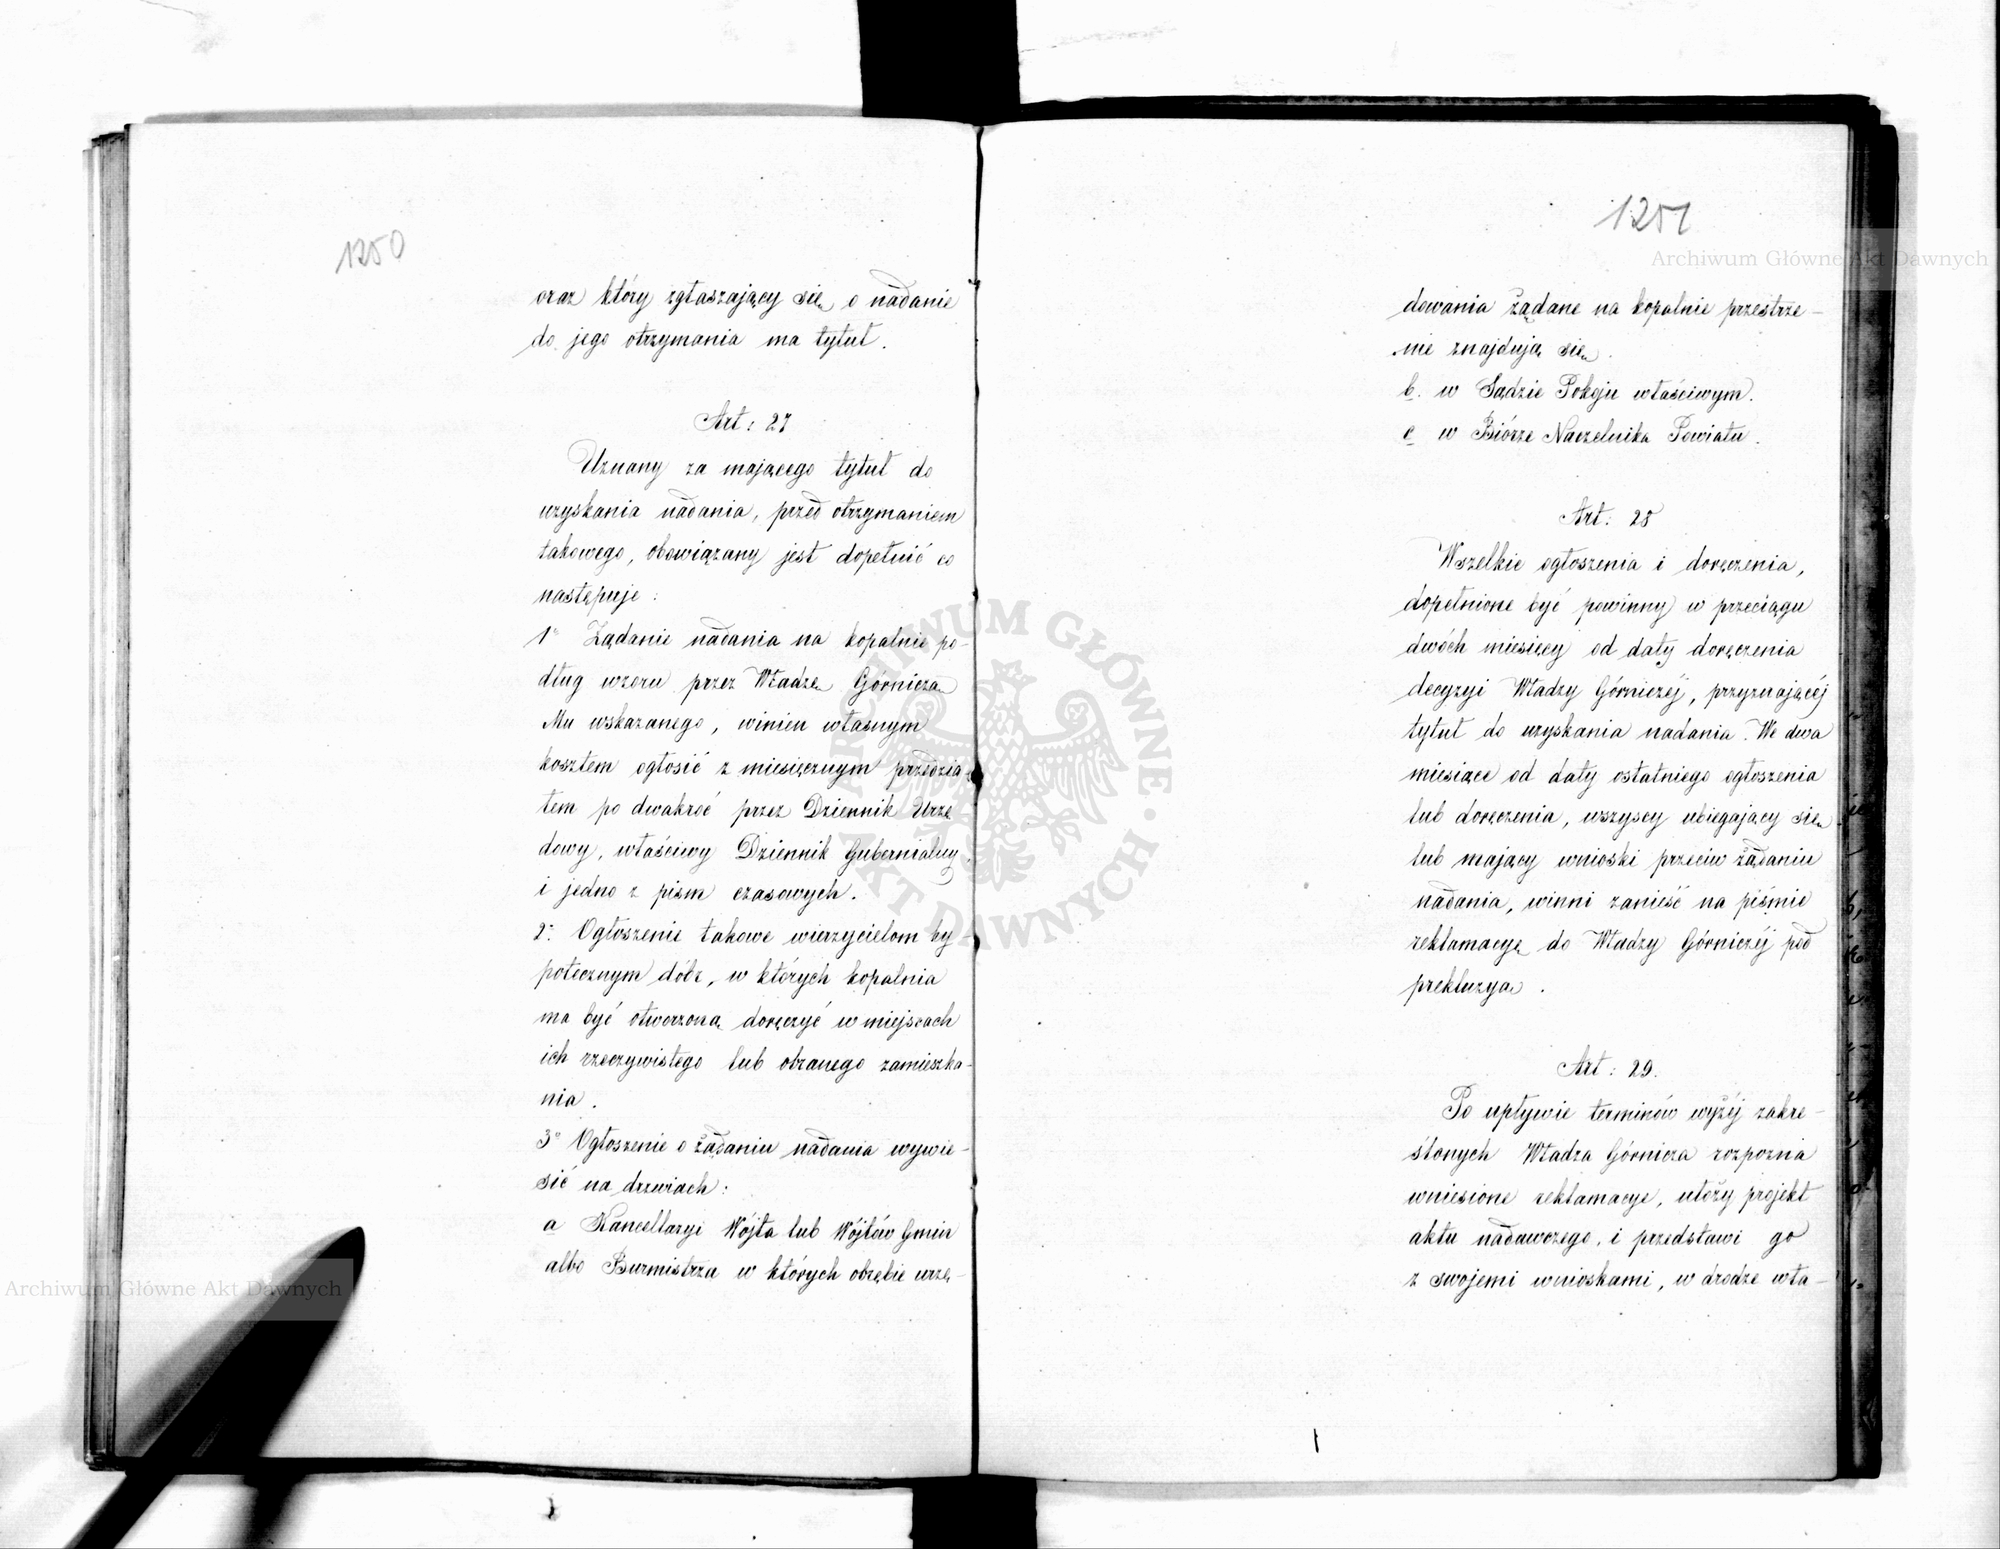 1250
oraz który zgłaszający się o nadanie
do jego otrzymania ma tytuł.
Art: 27
Uznany za mającego tytuł do
uzyskania nadania, przed otrzymaniem
takowego, obowiązany jest dopełnić co
następuje:
1° Żądanie nadania na kopalnie po-
dług wzoru przez Władzę Górniczą
Mu wskazanego, winien własnym
kosztem ogłosić z miesięcznym przedzia-
łem po dwakroć przez Dziennik Urzę
dowy, właściwy Dziennik Gubernialny,
i jedno z pism czasowych.
2°. Ogłoszenie takowe wierzycielom hy-
potecznym dóbr, w których kopalnia
ma być otworzoną doręczyć w miejscach
ich rzeczywistego lub obranego zamieszka-
nia.
3° Ogłoszenie o żądaniu nadania wywie-
sić na drzwiach:
a Kancellaryi Wójta lub Wójtów Gmin
albo Burmistrza w których obrębie urzę-
1251
dowania żądane na kopalnie przestrze-
nie znajdują się.
b. w Sądzie Pokoju właściwym.
c w Biórze Naczelnika Powiatu.
Art: 28
Wszelkie ogłoszenia i doręczenia,
dopełnione być powinny w przeciągu
dwóch miesięcy od daty doręczenia
decyzyi Władzy Górniczéj, przyznającéj
tytuł do uzyskania nadania. We dwa
miesiące od daty ostatniego ogłoszenia
lub doręczenia, wszyscy ubiegający się
lub mający wnioski przeciw żądaniu
nadania, winni zanieść na piśmie
reklamacyę do Władzy Górniczéj pod
prekluzyą.
Art: 29.
Po upływie terminów wyżéj zakre-
ślonych Władza Górnicza rozpozna
wniesione reklamacye, ułoży projekt
aktu nadawczego, i przedstawi go
z swojemi wnioskami, w drodze wła-
Archiwum Główne Akt Dawnych
Archiwum Główne Akt Dawnych
ARCHIWUM GŁÓWNE AKT DAWNYCH